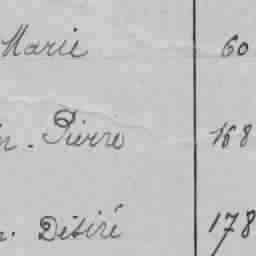 Marie 60
Pierre 168
Désiré 178